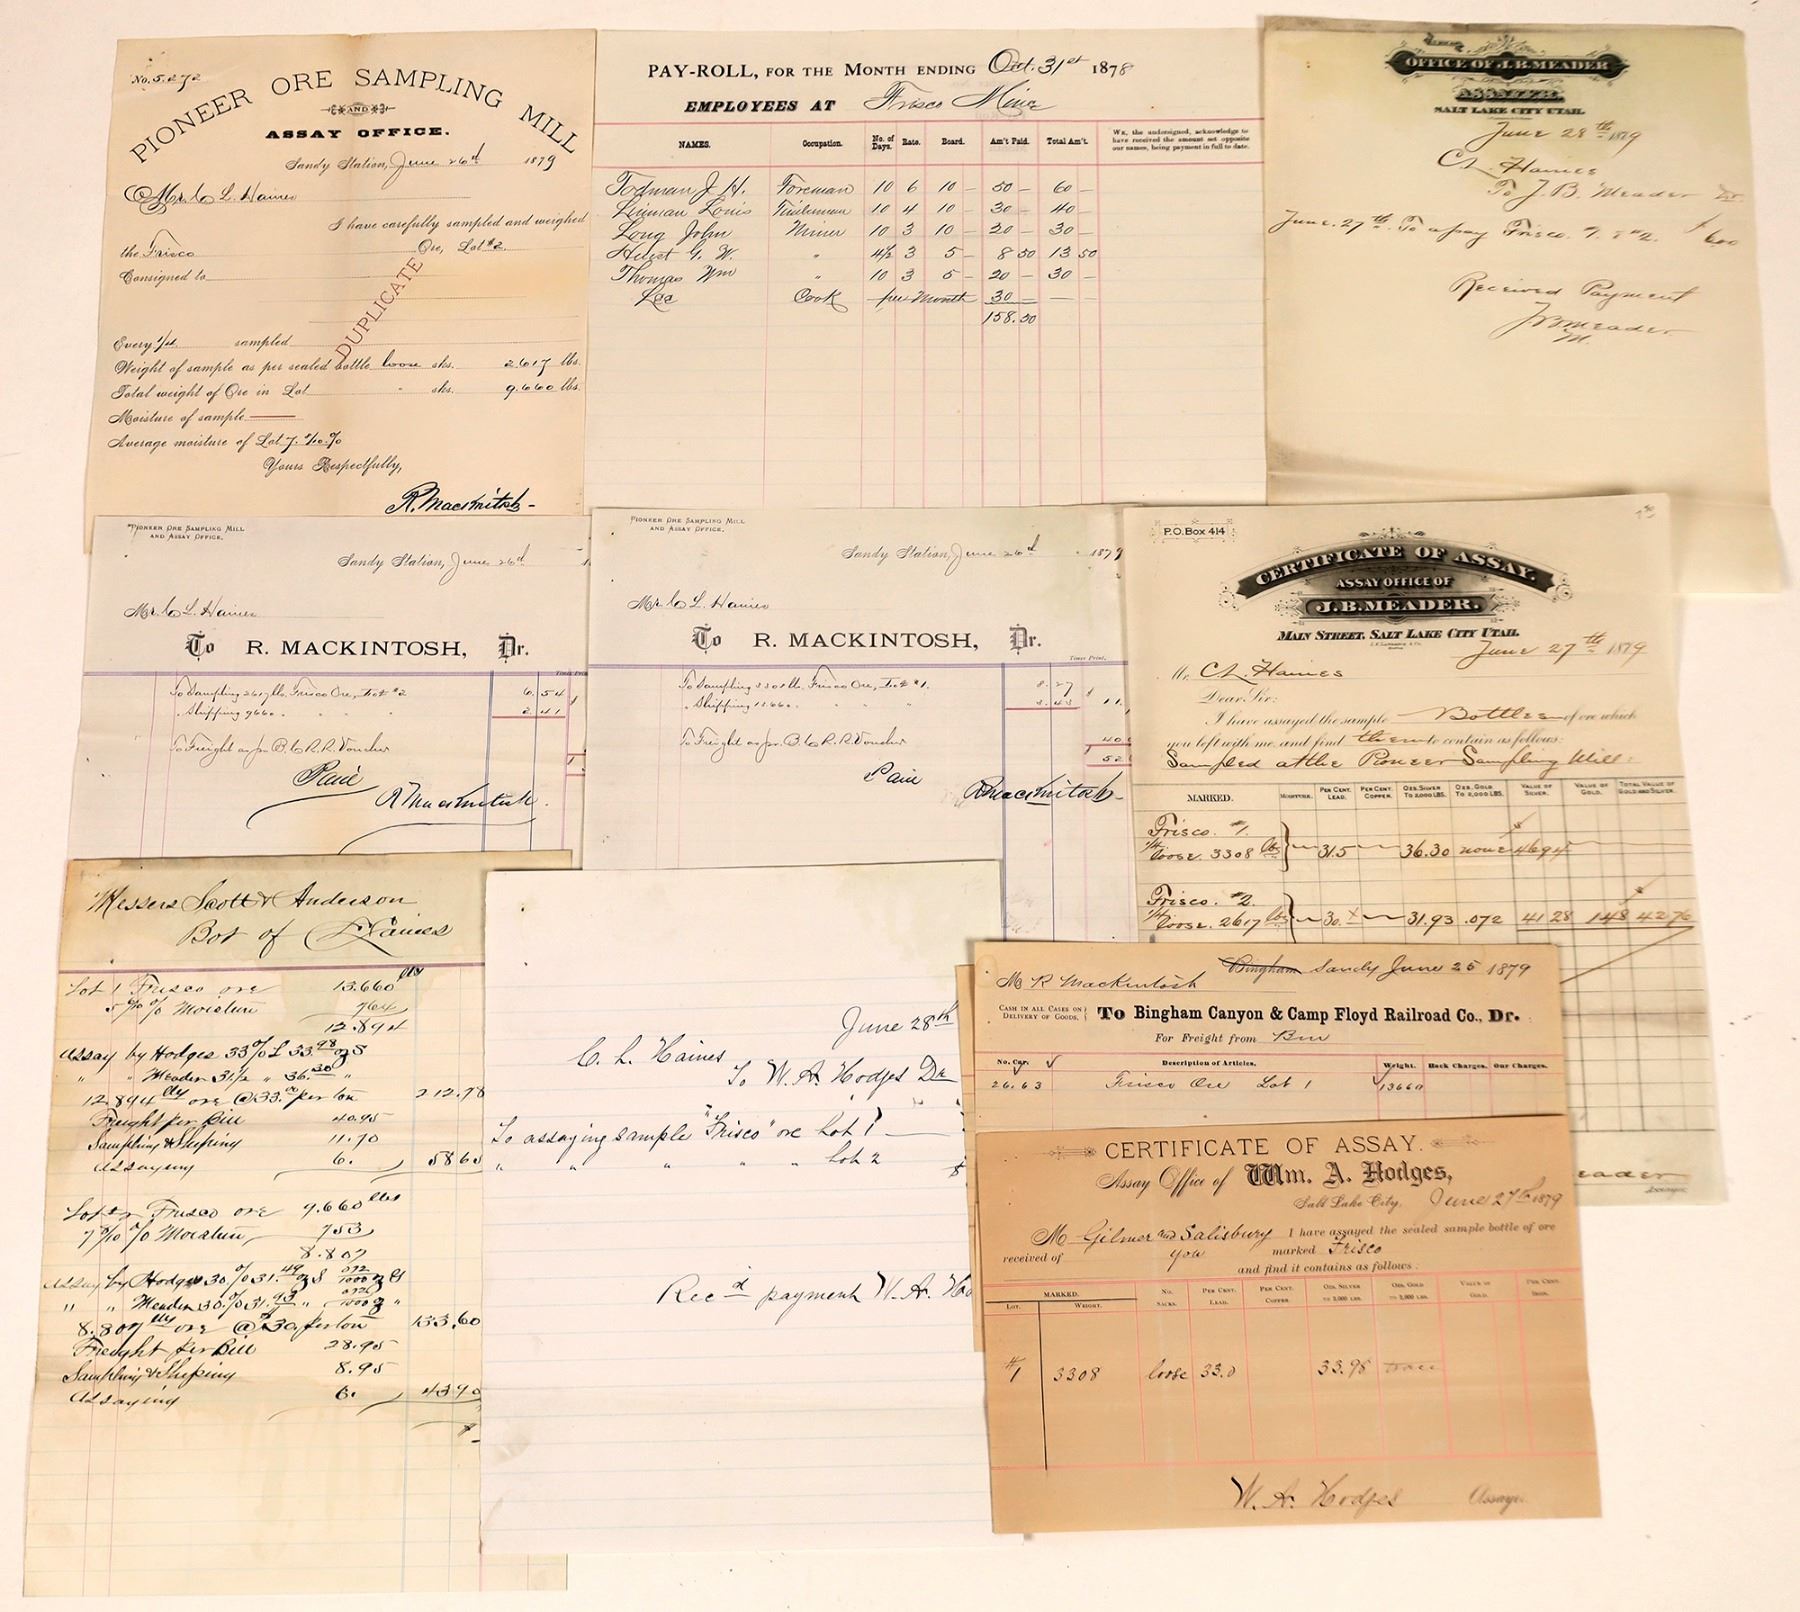 No. 5.272
PIONEER ORE SAMPLING MILL
AND
ASSAY OFFICE.
Sandy Station, June 26d 1879
Mr. C L. Haines
I have carefully sampled and weighed
the Frisco Ore, Lot #2
Consigned to
DUPLICATE
Every 1/4 sampled
Weight of sample as per sealed bottle loose sks. 2617 lbs.
Total weight of Ore in Lot " sks. 9.660 lbs.
Moisture of sample
Average moisture of Lot 7. 8/10. %
Yours Respectfully,
R. Mackintosh
PAY-ROLL, FOR THE MONTH ENDING Oct. 31st 1878
EMPLOYEES AT Frisco Mine
NAMES. Occupation. No. of Days. Rate. Board. Am't Paid. Total Am't.
WE, the undersigned, acknowledge to
have received the amount set opposite
our names, being payment in full to date.
Todman J. H. Foreman 10 6 10 – 50 – 60 –
Linman Louis Timberman 10 4 10 – 30 – 40 –
Long John Miner 10 3 10 – 20 – 30 –
Heist G. W. " 4½ 3 5 – 8 50 13 50
Thomas Wm " 10 3 5 – 20 – 30 –
Lee Cook per Month 30 –
158.50
OFFICE OF J. B. MEADER
ASSAYER.
SALT LAKE CITY UTAH.
June 28th 1879
C L. Haines
To J. B. Meader Dr
June. 27th. To assay Frisco. #1. & #2. $ 6 00
Received Payment
J B Meader
M.
PIONEER ORE SAMPLING MILL
AND ASSAY OFFICE.
Sandy Station, June 26d
Mr. C L. Haines
To R. MACKINTOSH, Dr.
To Sampling 2617 lb. Frisco Ore, Lot #2 6. 54
" Shipping 9660. " " " 2. 41
To Freight as pr. B. C R. R. Voucher
Paid
R Mackintosh.
PIONEER ORE SAMPLING MILL
AND ASSAY OFFICE.
Sandy Station, June 26d 1879
Mr. C L. Haines
To R. MACKINTOSH, Dr.
Times Print.
To Sampling 3308 lb. Frisco Ore, Lot #1. 8. 27
" Shipping 13.660. " " " 3. 43 11
To Freight as pr. B. C R. R. Voucher 40
52
Paid R Mackintosh
P.O. Box 414
CERTIFICATE OF ASSAY.
ASSAY OFFICE OF
J. B. MEADER.
MAIN STREET, SALT LAKE CITY UTAH.
June 27th 1879
Mr. C L. Haines
Dear Sir:
I have assayed the sample Bottles of ore which
you left with me, and find them to contain as follows:
Sampled at the Pioneer Sampling Mill:
MARKED. MOISTURE. PER CENT. LEAD. PER CENT. COPPER. OZS. SILVER TO 2,000 LBS. OZS. GOLD TO 2,000 LBS. VALUE OF SILVER. VALUE OF GOLD. TOTAL VALUE OF GOLD AND SILVER.
Frisco. #1. $
1/4 loose. 3308 lbs 31.5 36.30 none 46 94
Frisco. #2. $
1/4 loose. 2617 lbs 30. 31.93 .072 41 28 1 48 42 76
Meader
Assayer
Messers Scott & Anderson
Bot of C L Haines
Lot 1 Frisco ore 13.660 lbs
5 6/10 % Moisture 764
12.894
Assay by Hodges 33% L 33.98 oz S
" " Meader 31½ " 36.30 "
12.894 lbs ore @ 33.00 per ton 212.78
Freight per Bill 40.95
Sampling & Shiping 11.70
Assaying 6. 58 65
Lot 2 Frisco ore 9.660 lbs
7 8/10 % Moisture 753
8.807
Assay by Hodges 30.% 31.49 oz S 072/1000 oz G
" " Meader 30.% 31.93 " 072/1000 oz "
8.807 lbs ore @ 30. per ton 133.60
Freight per Bill 28.95
Sampling & Shiping 8.95
Assaying 6. 43 90
$
June 28th
C. L. Haines
To W. A. Hodges Dr
To assaying sample "Frisco" ore Lot 1
" " " " " Lot 2 $
Rec'd payment W. A. Ho
Bingham Sandy June 25 1879
M R Mackintosh
CASH IN ALL CASES ON DELIVERY OF GOODS.
To Bingham Canyon & Camp Floyd Railroad Co., Dr.
For Freight from Bin
No. Car. Description of Articles. Weight. Back Charges. Our Charges.
26. 63 Frisco Ore Lot 1 13660
CERTIFICATE OF ASSAY.
Assay Office of Wm. A. Hodges,
Salt Lake City, June 27th 1879
M Gilmer and Salisbury I have assayed the sealed sample bottle of ore
received of you marked Frisco
and find it contains as follows:
MARKED. LOT. WEIGHT. NO. SACKS. PER CENT. LEAD. PER CENT. COPPER. OZS. SILVER TO 2,000 LBS. OZS. GOLD TO 2,000 LBS. VALUE OF GOLD. PER CENT. IRON.
#1 3308 loose 33.0 33.98 trace
W. A. Hodges Assayer